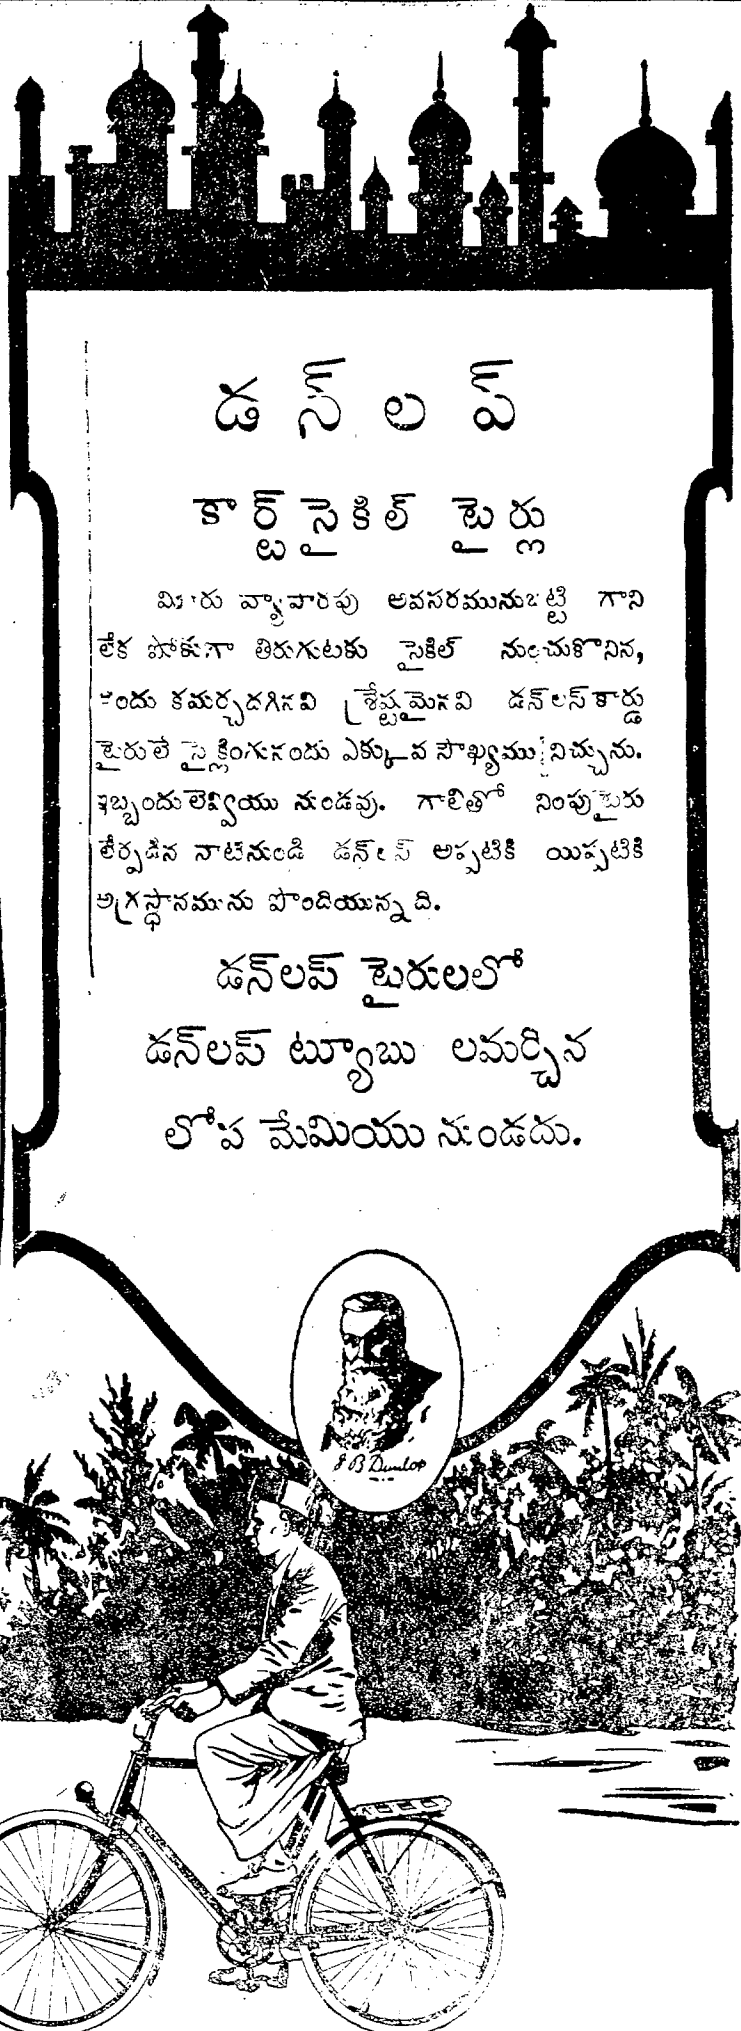 డన్‌లప్
కార్ట్ సైకిల్ టైర్లు
మీరు వ్యాపారపు అవసరమునుబట్టి గాని
లేక షోకుగా తిరుగుటకు సైకిల్ నుంచుకొనిన,
అందు కమర్చదగినవి శ్రేష్టమైనవి డన్‌లప్ కార్డు
టైరులే సైక్లింగునందు ఎక్కువ సౌఖ్యము నిచ్చును.
ఇబ్బందులెవ్వియు నుండవు. గాలితో నింపు టైరు
లేర్పడిన నాటినుండి డన్‌లప్ అప్పటికి యిప్పటికి
అగ్రస్థానమును పొందియున్నది.
డన్‌లప్ టైరులలో
డన్‌లప్ ట్యూబు లమర్చిన
లోప మేమియు నుండదు.
J B Dunlop